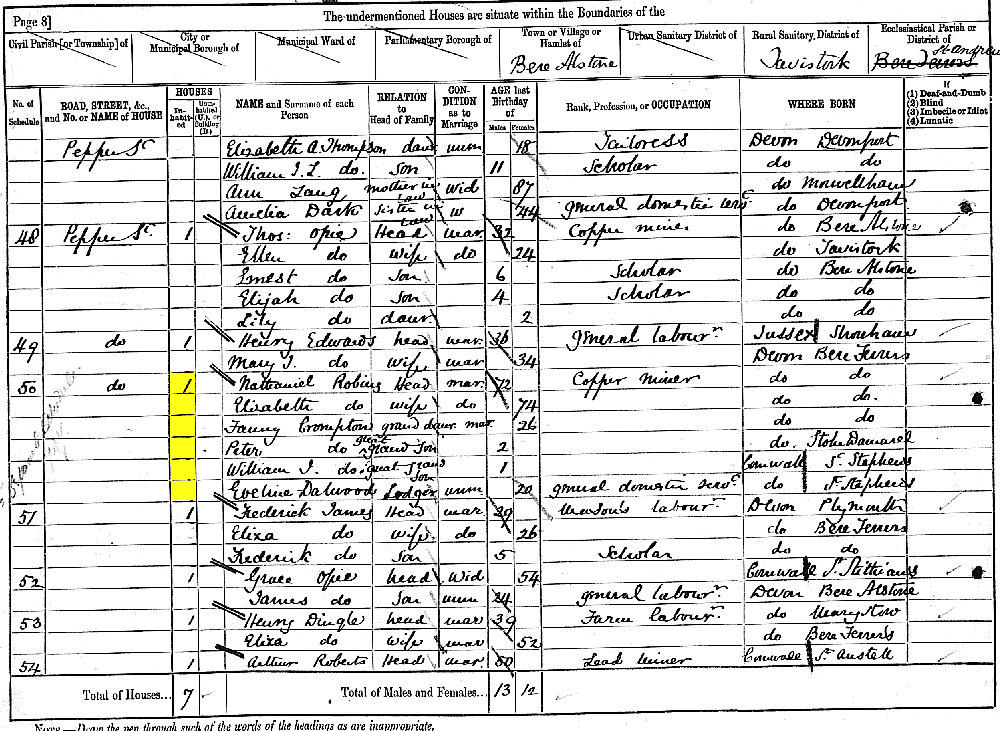 Page 8] The undermentioned Houses are situate within the Boundaries of the
Civil Parish [or Township] of City or Municipal Borough of Municipal Ward of Parliamentary Borough of Town or Village or Hamlet of Urban Sanitary District of Rural Sanitary District of Ecclesiastical Parish or District of
Bere Alstone Tavistock St Andrew Bere Ferrers
No. of Schedule ROAD, STREET, &c., and No. or NAME of HOUSE HOUSES In-habit-ed Unin-habited (U.), or Building (B.) NAME and Surname of each Person RELATION to Head of Family CON-DITION as to Marriage AGE last Birthday of Males Females Rank, Profession, or OCCUPATION WHERE BORN If (1) Deaf-and-Dumb (2) Blind (3) Imbecile or Idiot (4) Lunatic
Pepper St Elizabeth A Thompson daur unm 18 Tailoress Devon Devonport
William J. L. do. Son 11 Scholar do do
Ann Lang mother in law Wid 87 do Morwellham
Amelia Dark Sister in law w 44 general domestic serv do Devonport
48 Pepper St. 1 Thos: Opie Head mar 32 Copper miner do Bere Alstone
Ellen do Wife do 24 do Tavistock
Ernest do Son 6 Scholar do Bere Alstone
Elijah do Son 4 Scholar do do
Lily do daur. 2 do do
49 do 1 Henry Edwards head mar. 36 general labourr Sussex Shoreham
Mary J. do wife mar 34 Devon Bere Ferrers
50 do 1 Nathaniel Robins Head mar. 72 Copper miner do do
Elizabeth do wife do 74 do do.
Fanny Crompton grand daur. mar 26 do do
Peter do great grand Son 2 do. Stoke Damarel
William J. do great grand Son 1 Cornwall St. Stephens
Evelina Dalwood Lodger unm 20 general domestic serv. do St. Stephens
51 1 Frederick James Head mar 29 Mason's labourr Devon Plymouth
Eliza do wife do 26 do Bere Ferrers
Frederick do Son 5 Scholar do do
52 1 Grace Opie head Wid 54 Cornwall St. Stithians
James do Son unm 24 general labourr Devon Bere Alstone
53 1 Henry Dingle head mar 39 Farm labourr do Marystow
Eliza do wife mar 52 do Bere Ferrers
54 1 Arthur Roberts Head mar 50 Lead miner Cornwall St. Austell
Total of Houses... 7 Total of Males and Females... 13 12
NOTE.—Draw the pen through such of the words of the headings as are inappropriate.